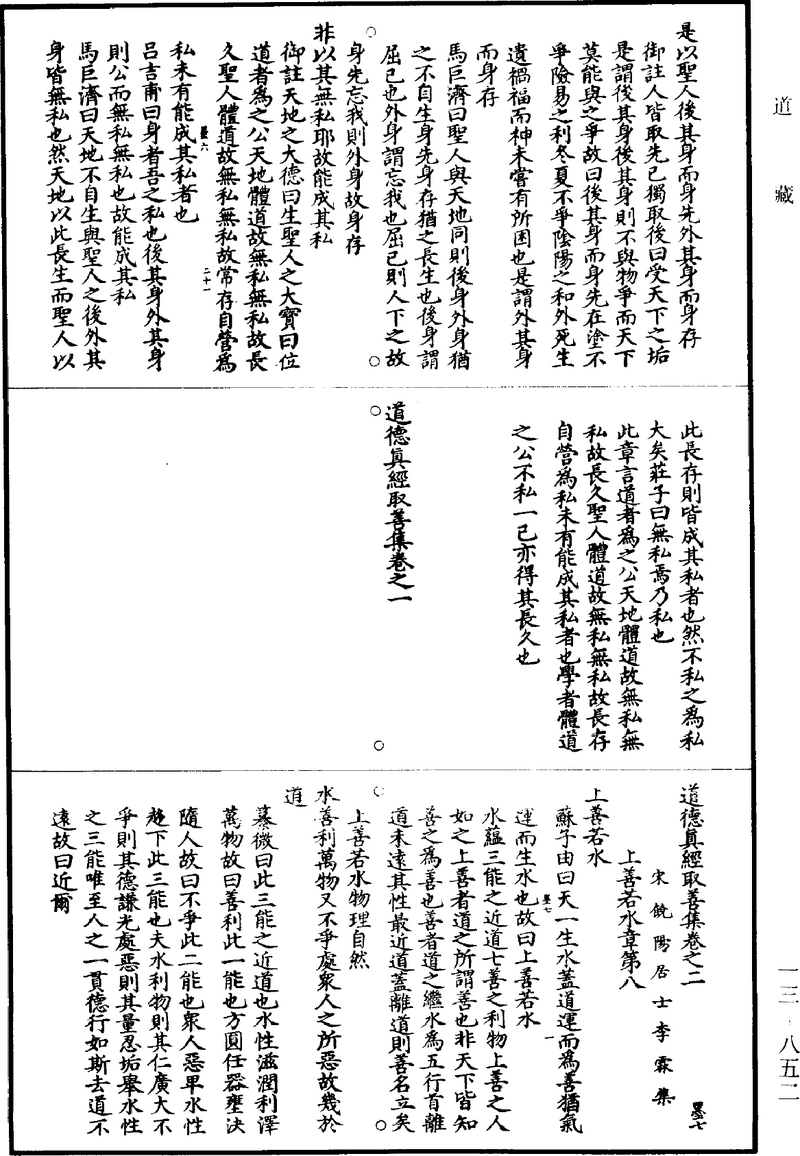 道藏
是以聖人後其身而身先外其身而身存
御註人皆取先己獨取後曰受天下之垢
是謂後其身後其身則不與物爭而天下
莫能與之爭故曰後其身而身先在塗不
爭險易之利冬夏不爭陰陽之和外死生
遺禍福而神未嘗有所困也是謂外其身
而身存
馬巨濟曰聖人與天地同則後身外身猶
之不自生身先身存猶之長生也後身謂
屈己也外身謂忘我也屈己則人下之故
身先忘我則外身故身存
非以其無私耶故能成其私
御註天地之大德曰生聖人之大寶曰位
道者為之公天地體道故無私無私故長
久聖人體道故無私無私故常存自營為
墨六 二十一
私未有能成其私者也
呂吉甫曰身者吾之私也後其身外其身
則公而無私無私也故能成其私
馬巨濟曰天地不自生與聖人之後外其
身皆無私也然天地以此長生而聖人以
此長存則皆成其私者也然不私之為私
大矣莊子曰無私焉乃私也
此章言道者為之公天地體道故無私無
私故長久聖人體道故無私無私故長存
自營為私未有能成其私者也學者體道
之公不私一己亦得其長久也
道德真經取善集卷之一
道德真經取善集卷之二
墨七
宋饒陽居士李霖集
上善若水章第八
上善若水
蘇子由曰天一生水蓋道運而為善猶氣
運而生水也故曰上善若水
墨七 一
水蘊三能之近道七善之利物上善之人
如之上善者道之所謂善也非天下皆知
善之為善也善者道之繼水為五行首離
道未遠其性最近道蓋離道則善名立矣
上善若水物理自然
水善利萬物又不爭處衆人之所惡故幾於
道
纂微曰此三能之近道也水性滋潤利澤
萬物故曰善利此一能也方圓任器壅決
隨人故曰不爭此二能也衆人惡卑水性
趍下此三能也夫水利物則其仁廣大不
爭則其德謙光處惡則其量忍垢舉水性
之三能唯至人之一貫德行如斯去道不
遠故曰近爾
一三·八五二